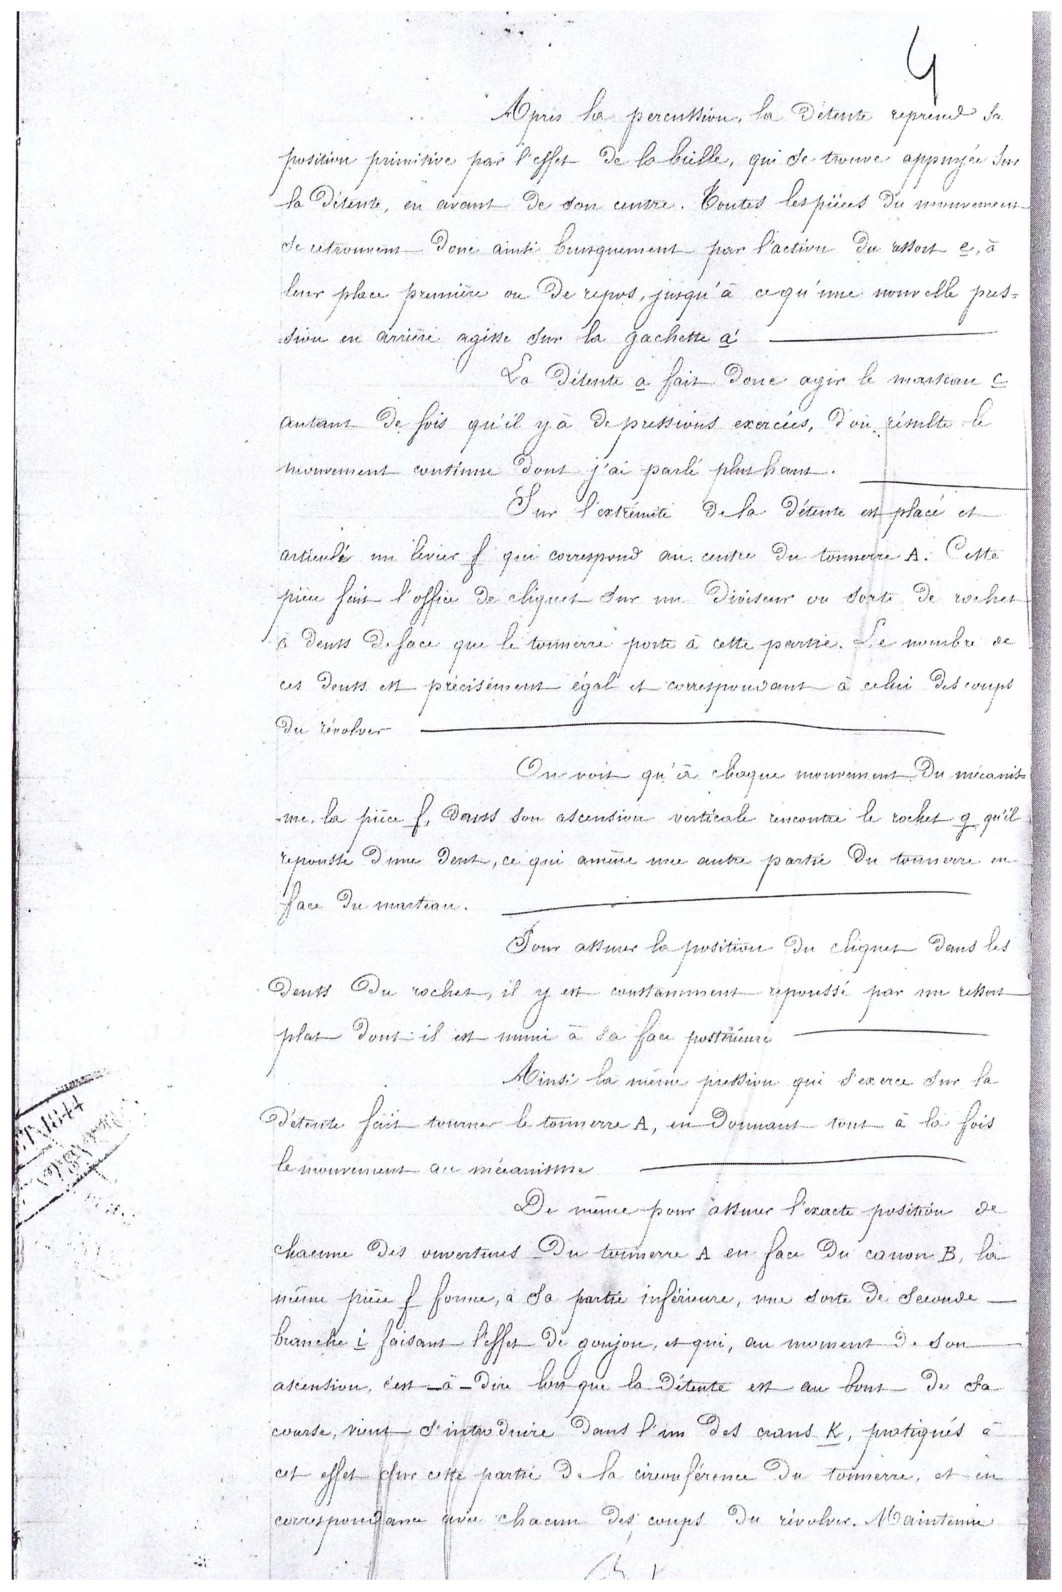 4
Après la percussion, la Détente reprend sa
position primitive par l'effet de la bielle, qui se trouve appuyée sur
la Détente, en avant de son centre. Toutes les pièces du mouvement
se retrouvent donc ainsi brusquement par l'action du ressort e, à
leur place première ou de repos, jusqu'à ce qu'une nouvelle pres=
sion en arrière agisse sur la gachette a'
La Détente a fait donc agir le marteau c
autant de fois qu'il y a de pressions exercées, d'où résulte le
mouvement continu dont j'ai parlé plus haut.
Sur l'extrémité de la détente est placé et
articulé un levier f qui correspond au centre du tonnerre A. Cette
pièce fait l'office de cliquet sur un diviseur ou sorte de rochet
à dents de face que le tonnerre porte à cette partie. Le nombre de
ces dents est précisément égal et correspondant à celui des coups
du révolver
On voit qu'à chaque mouvement du mécanis
-me, la pièce f, dans son ascension verticale rencontre le rochet g qu'il
repousse d'une dent, ce qui amène une autre partie du tonnerre en
face du marteau.
Pour assurer la position du cliquet dans les
dents du rochet, il y est constamment repoussé par un ressort
plat dont il est muni à sa face postérieure
Ainsi la même pression qui s'exerce sur la
Détente fait tourner le tonnerre A, en donnant tout à la fois
le mouvement au mécanisme
De même pour assurer l'exacte position de
chacune des ouvertures du tonnerre A en face du canon B, la
même pièce f forme, à sa partie inférieure, une sorte de seconde
branche i faisant l'effet de goujon, et qui, au moment de son
ascension, c'est-à-dire lorsque la Détente est au bout de sa
course, vient s'introduire dans l'un des crans K, pratiqués à
cet effet sur cette partie de la circonférence du tonnerre, et en
correspondance avec chacun des coups du révolver. Maintenu
1844